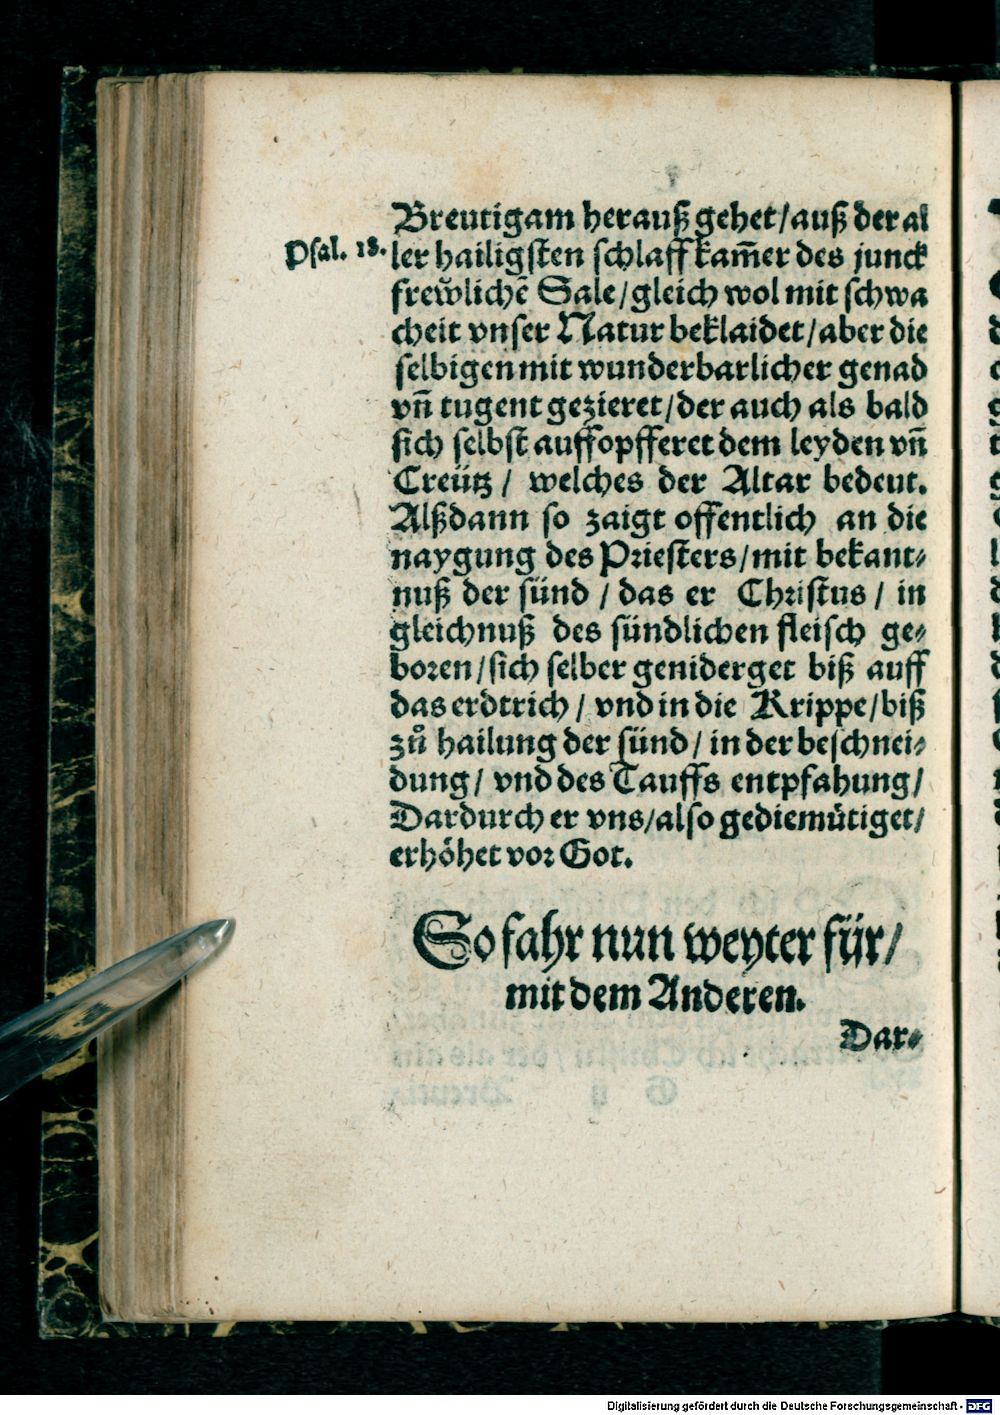 Breutigam herauß gehet/auß der al
Psal. 18.
ler hailigsten schlaff kam̄er des junck
frew̆lichē Sale/gleich wol mit schwa
cheit vnser Natur beklaidet/aber die
selbigen mit wunderbarlicher genad
vn̄ tugent gezieret/der auch als bald
sich selbst auffopfferet dem leyden vn̄
Creütz/ welches der Altar bedeut.
Alßdann so zaigt offentlich an die
naygung des Priesters/mit bekant⸗
nuß der sünd / das er Christus / in
gleichnuß des sündlichen fleisch ge⸗
boren/sich selber geniderget biß auff
das erdtrich/ vnd in die Krippe/biß
zů hailung der sünd/ in der beschnei⸗
dung/ vnd des Tauffs entpfahung/
Dardurch er vns/also gediemütiget/
erhöhet vor Got.
So fahr nun weyter für/
mit dem Anderen.
Dar⸗
Digitalisierung gefördert durch die Deutsche Forschungsgemeinschaft - DFG